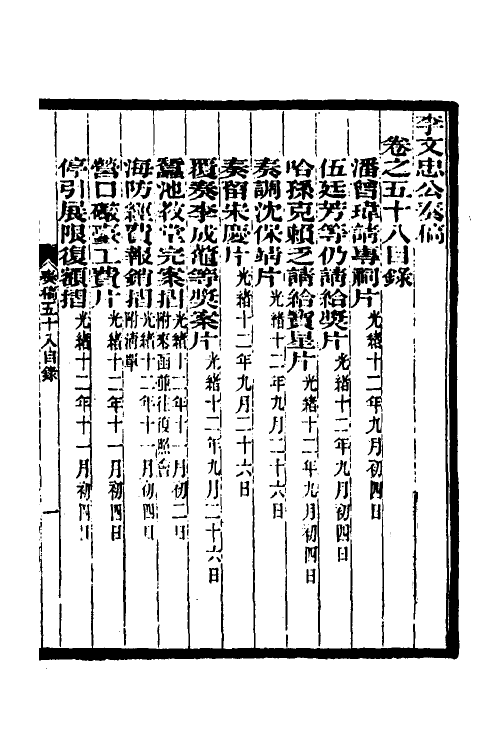 李文忠公奏稿
卷之五十八目錄
潘曾瑋請專祠片 光緒十二年九月初四日
伍廷芳等仍請給獎片 光緒十二年九月初四日
哈孫克賴乏請給寶星片 光緒十二年九月初四日
奏調沈保靖片 光緒十二年九月二十六日
奏留朱慶片 光緒十二年九月二十六日
覆奏李成鼇等獎案片 光緒十二年九月二十六日
蠶池教堂完案摺 光緒十二年十一月初二日 附來函並往復照會
海防經費報銷摺 光緒十二年十一月初四日 附清單
營口礮臺工費片 光緒十二年十一月初四日
停引展限復額摺 光緒十二年十一月初四日
奏稿五十八目錄 一